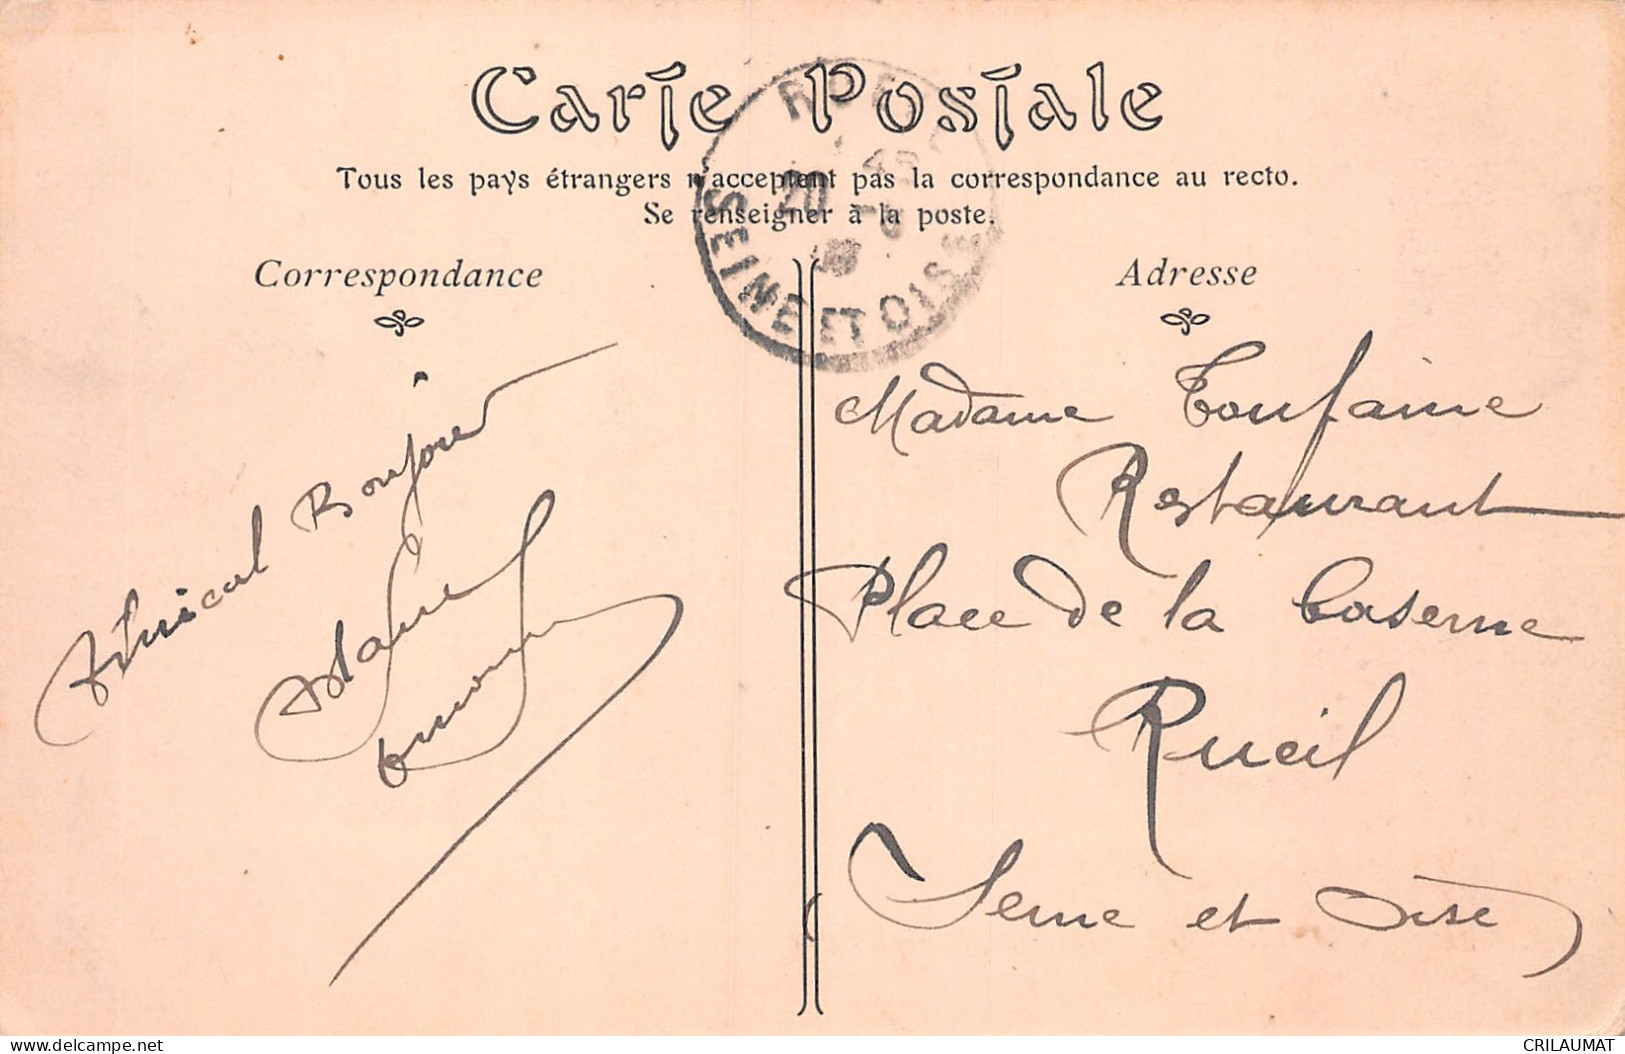 Carte Postale
Tous les pays étrangers n'acceptent pas la correspondance au recto.
Se renseigner à la poste.
Correspondance
Adresse
SEINE ET OISE
20
Amical Bonjour
Madame Toufaine
Restaurant
Place de la Caserne
Rueil
Seine et Oise
www.delcampe.net
CRILAUMAT